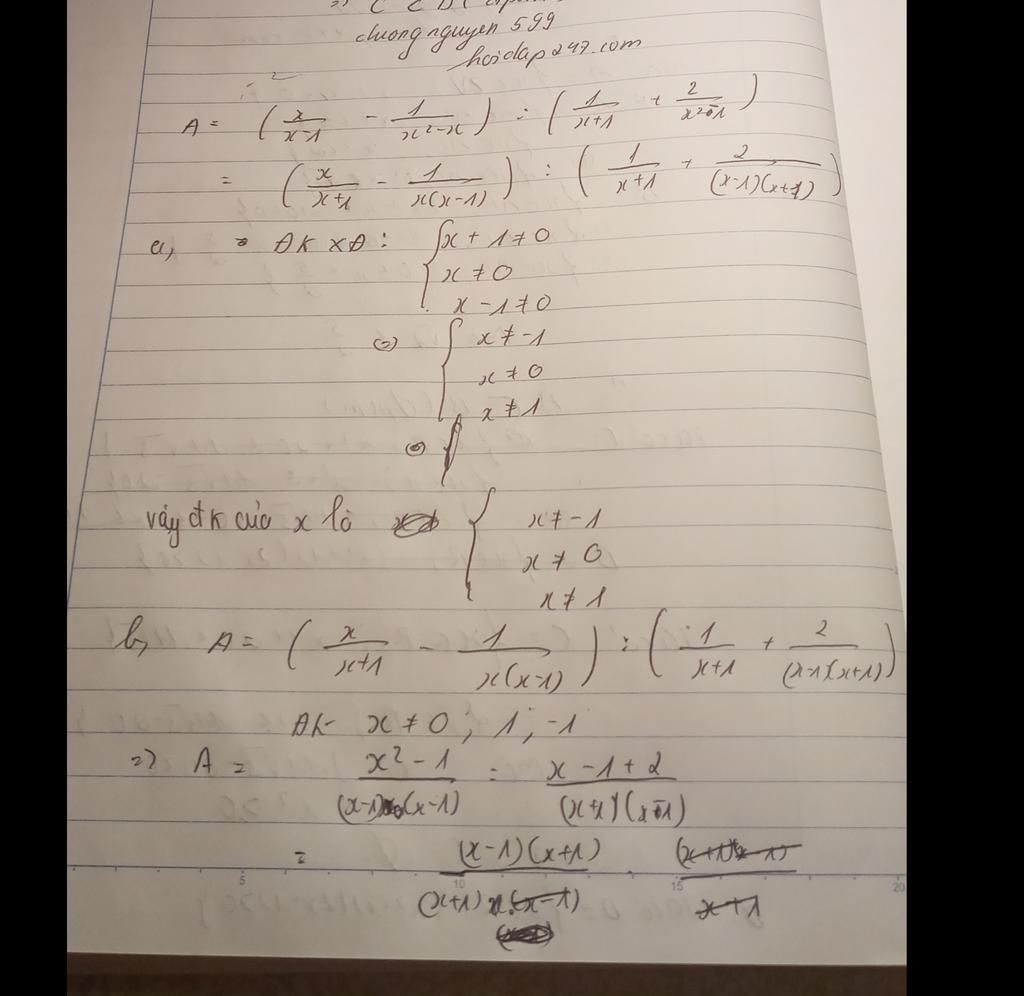 chuongnguyen 599
hoidap247.com
A = (x/(x-1) - 1/(x²-x)) : (1/(x+1) + 2/(x²-1))
= (x/(x+1) - 1/(x(x-1))) : (1/(x+1) + 2/((x-1)(x+1)))
a, ĐKXĐ: { x + 1 ≠ 0
x ≠ 0
x - 1 ≠ 0
(=) { x ≠ -1
x ≠ 0
x ≠ 1
vậy đk của x là { x ≠ -1
x ≠ 0
x ≠ 1
b, A = (x/(x+1) - 1/(x(x-1))) : (1/(x+1) + 2/((x-1)(x+1)))
ĐK x ≠ 0 ; 1 ; -1
=> A = (x² - 1)/((x-1)x(x-1)) : (x - 1 + 2)/((x+1)(x-1))
= (x-1)(x+1)/((x+1) x.(x-1)) . (x+1)(x-1)/(x+1)